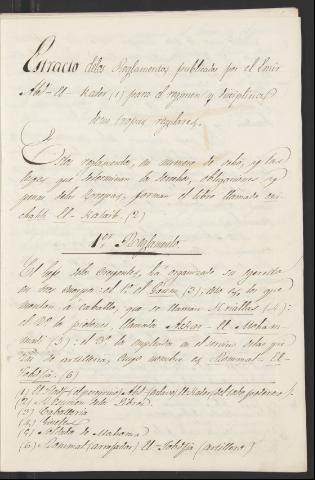 Extracto de los Reglamentos publicados por el Emir
Abd-El-Kader (1) para el regimen y disciplina
de sus tropas regulares.
Estos reglamentos, en numero de ocho, y las
leyes que determinan los derechos, obligaciones y
penas de las tropas, forman el libro llamado
El-Kataib. (2)
1er Reglamento.
El Gefe de los Creyentes, ha organizado su egercito
en tres cuerpos: el 1º el (3), que es los que
montan á caballo, que se llaman Kriallas (4):
el 2º los peatones, llamados Askar-El-Moham-
medi (5): el 3º los empleados en el servicio de las pie-
zas de artilleria, cuyo nombre es Rommat-El-
Tobdjia. (6)
(1) Abd (esclavo) El-Kader, del todo poderoso
(2) Reunion de los Libros
(3) Caballeria
(4) Ginetes
(5) Soldados de Mahoma
(6) Rommat (arrojador) El-Tobdjia (artillero)